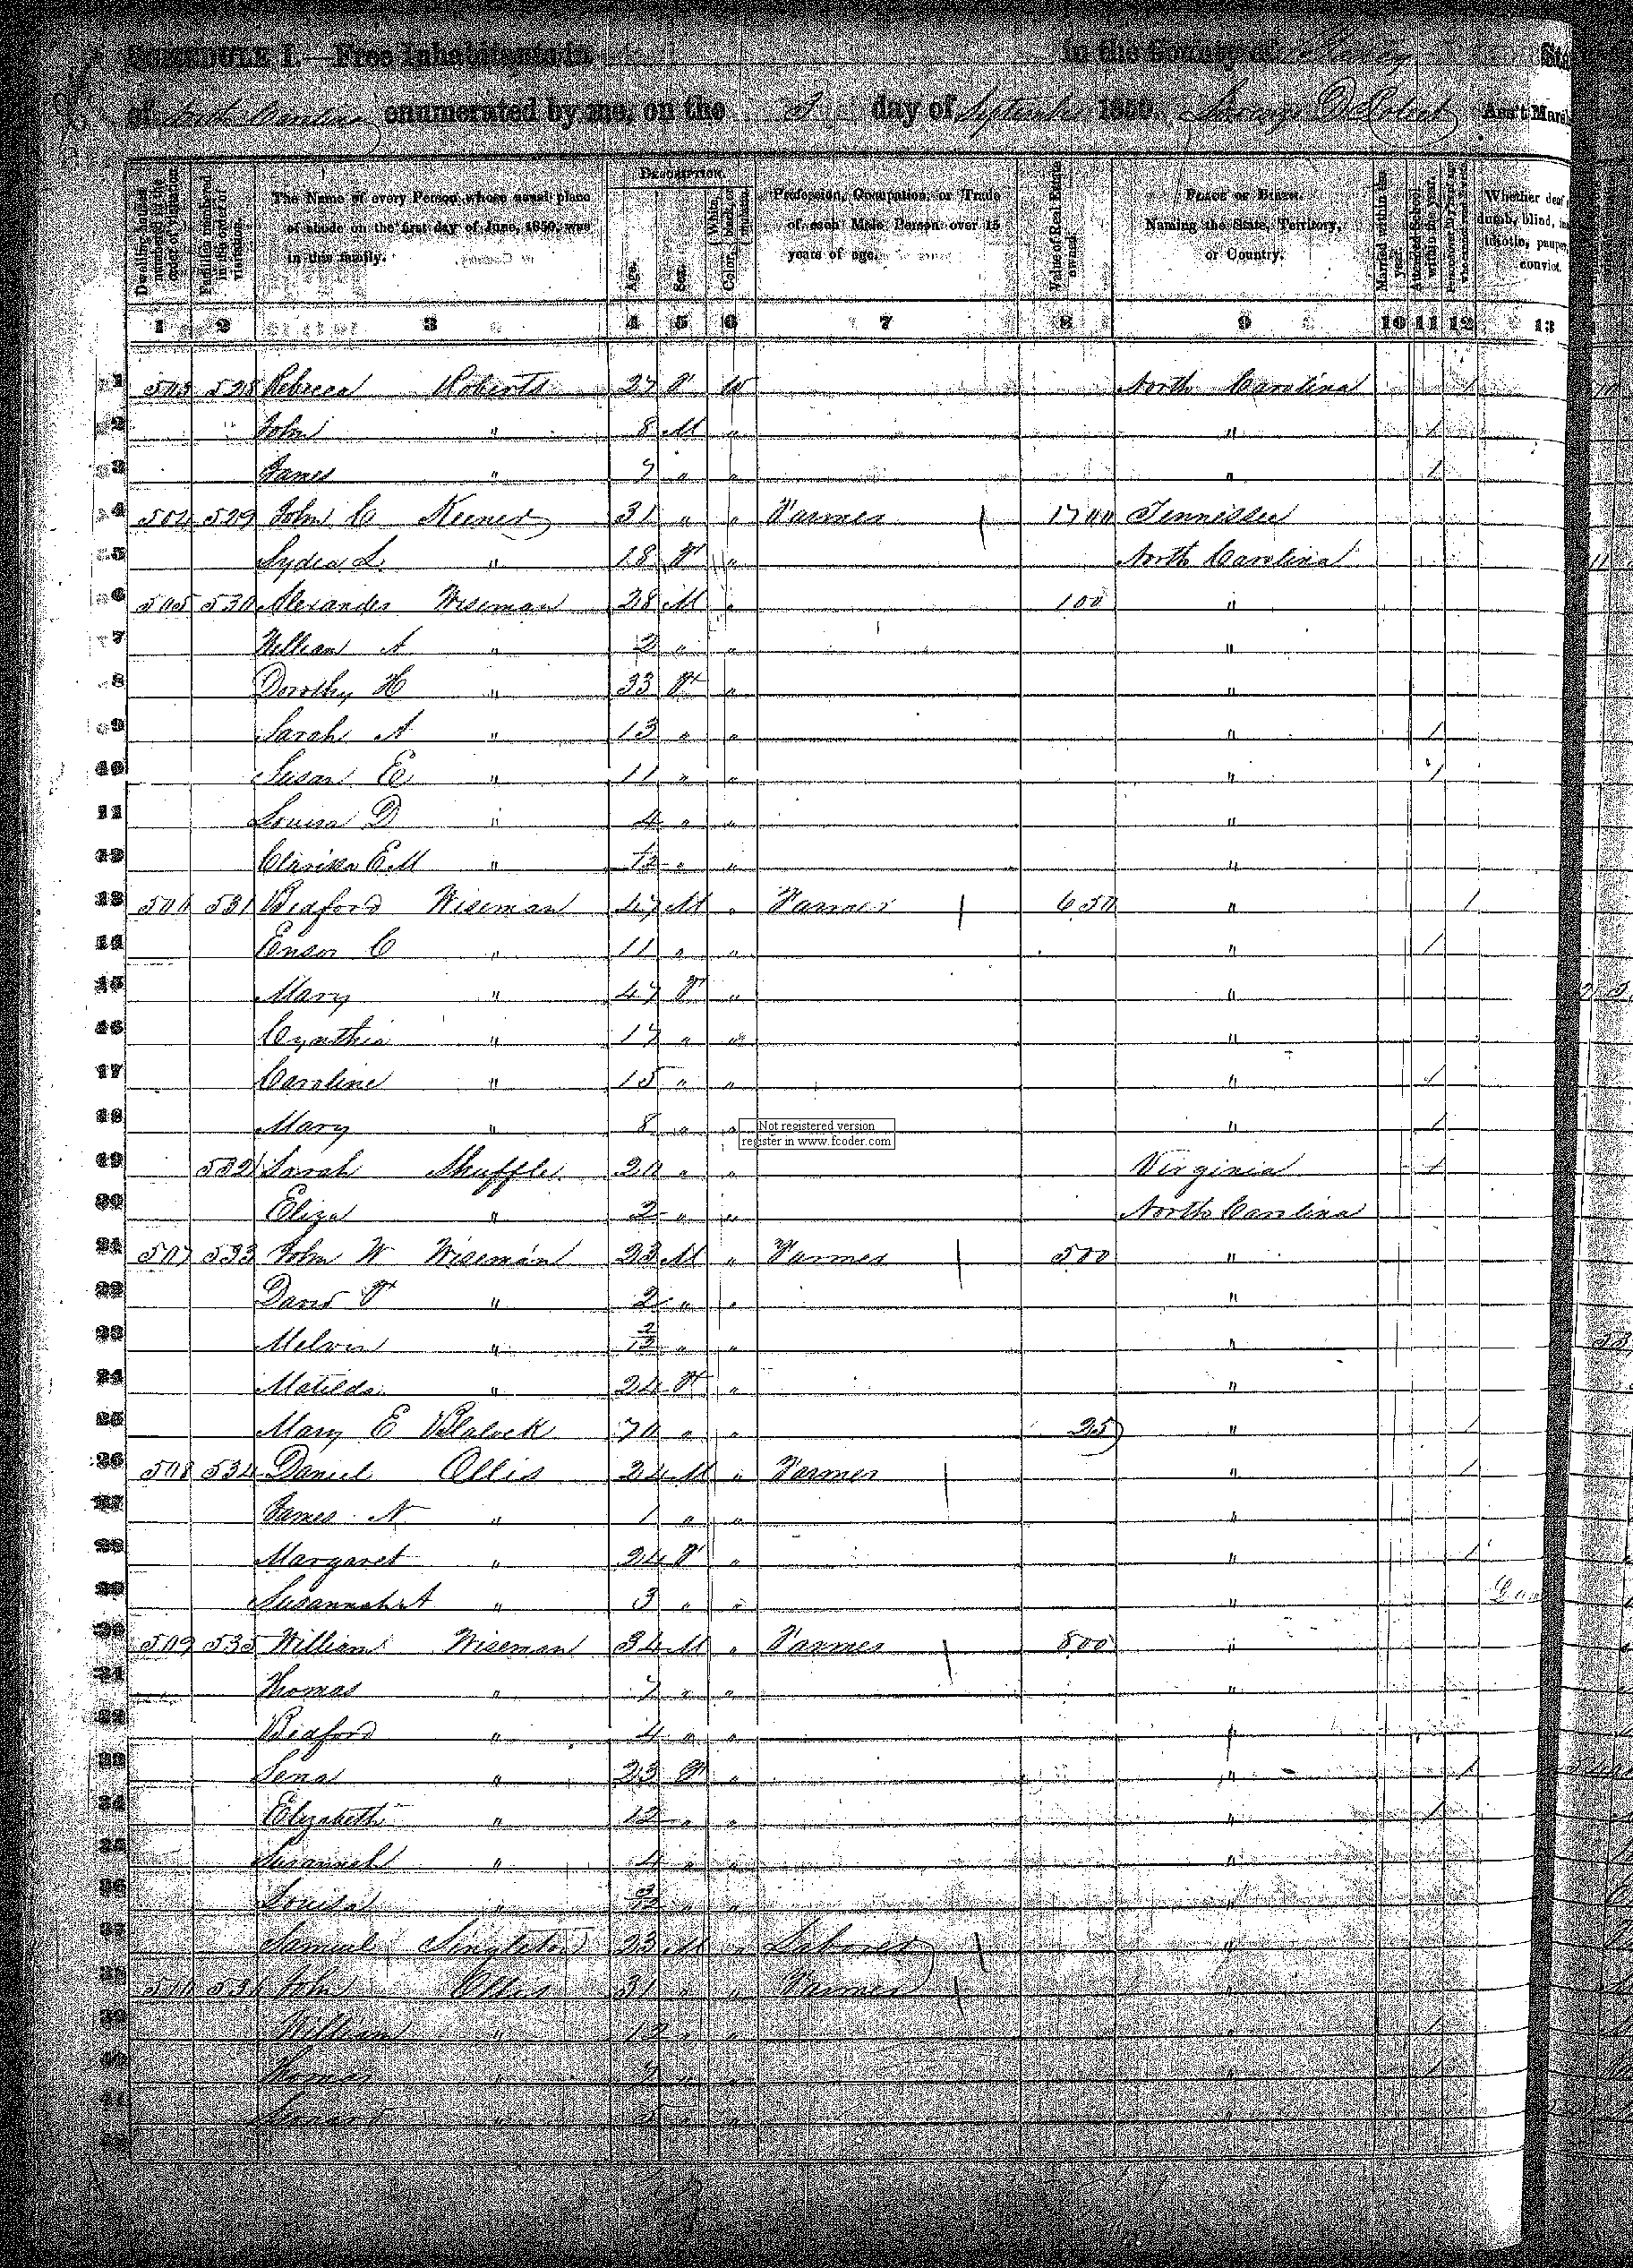 SCHEDULE I.—Free Inhabitants in in the County of
of North Carolina enumerated by me, on the 3 day of September 1850. Ass't Marsh
Dwelling-houses numbered in the order of visitation.
Families numbered in the order of visitation.
The Name of every Person whose usual place of abode on the first day of June, 1850, was in this family.
Description.
Age.
Sex.
Color, White, black, or mulatto.
Profession, Occupation, or Trade of each Male Person over 15 years of age.
Value of Real Estate owned.
Place of Birth. Naming the State, Territory, or Country.
Married within the year.
Attended School within the year.
Persons over 20 y'rs of age who cannot read & write.
Whether deaf, dumb, blind, idiotic, pauper, convict.
1 2 3 4 5 6 7 8 9 10 11 12 13
1 503 528 Rebecca Roberts 27 F W North Carolina 1
2 John " 8 M " " 1
3 James " 7 " " " 1
4 504 529 John C Keener 31 " " Farmer 1700 Tennessee
5 Lydia L. " 18 F " North Carolina
6 505 530 Alexander Wiseman 28 M " 100 "
7 William A " 2 " " "
8 Dorothy H " 33 F " "
9 Sarah A " 13 " " " 1
10 Susan E " 11 " " " 1
11 Louisa D " 4 " " "
12 E M " 1/12 " " "
13 506 531 Bedford Wiseman 47 M " Farmer 650 " 1
14 Ensor C " 11 " " " 1
15 Mary " 47 F " "
16 Cynthia " 17 " " "
17 Caroline " 15 " " " 1
18 Mary " 8 " " " 1
Not registered version
register in www.fcoder.com
19 532 Sarah Shuffle 20 " " Virginia 1
20 Eliza " 2 " " North Carolina
21 507 533 John W Wiseman 23 M " Farmer 500 "
22 David F " 2 " " "
23 Melvin " 2/12 " " "
24 Matilda " 24 F " "
25 Mary E Blalock 70 " " 25 " 1
26 508 534 Daniel Ollis 24 M " Farmer " 1
27 James N " 1 " " "
28 Margaret " 24 F " " 1
29 Susannah A " 3 " " "
30 509 535 William Wiseman 34 M " Farmer 800 "
31 Thomas " 7 " " "
32 Bedford " 4 " " "
33 Sena " 23 F " " 1
34 Elizabeth " 12 " " " 1
35 Susannah " 4 " " "
36 Louisa " " " "
37 Samuel Singleton 23 M " Laborer "
38 510 536 John Ollis 31 " " Farmer "
39 William " 12 " " " 1
40 Thomas " " " " 1
41 " 5 " " "
42